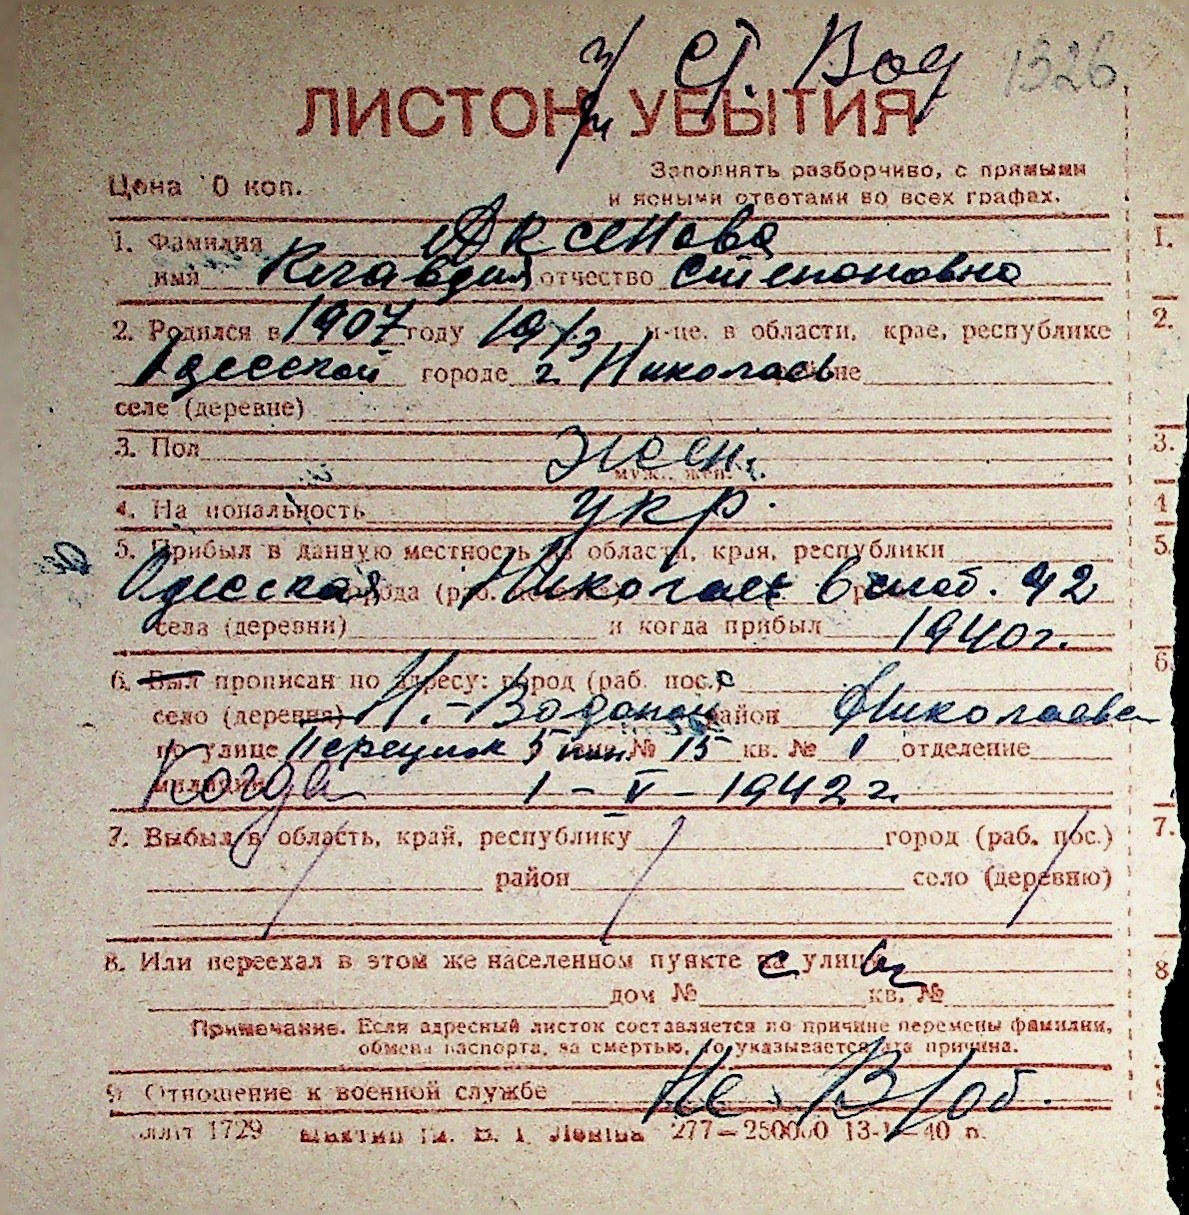 Ст. Вод 1326
ЛИСТОК УБЫТИЯ
Заполнять разборчиво, с прямыми
Цена 10 коп.
и ясными ответами во всех графах.
1. Фамилия Аксенова
имя Клавдия отчество Степановна
2. Родился в 1907 году 19/3 м-це. в области, крае, республике
Одесской городе г. Николаев
селе (деревне)
3. Пол жен.
муж., жен.
4. Национальность укр.
5. Прибыл в данную местность из области, края, республики
Одесская города Николаев 8 слоб. 42
села (деревни) и когда прибыл 1940 г.
6. Был прописан по адресу: город (раб. пос.) с
село (деревня) Н.-Водопой район Николаев
по улице 5 дом № 15 кв. № 1 отделение
милиции Когда 1-V-1942 г.
7. Выбыл в область, край, республику город (раб. пос.)
район село (деревню)
8. Или переехал в этом же населенном пункте с улицы
дом № кв. №
Примечание. Если адресный листок составляется по причине перемены фамилии,
обмена паспорта, за смертью, то указывается эта причина.
9. Отношение к военной службе Не. В/об.
1729 Ленина 277—250000 13-1—40 п.
1.
2.
3.
4
5.
6.
7.
8